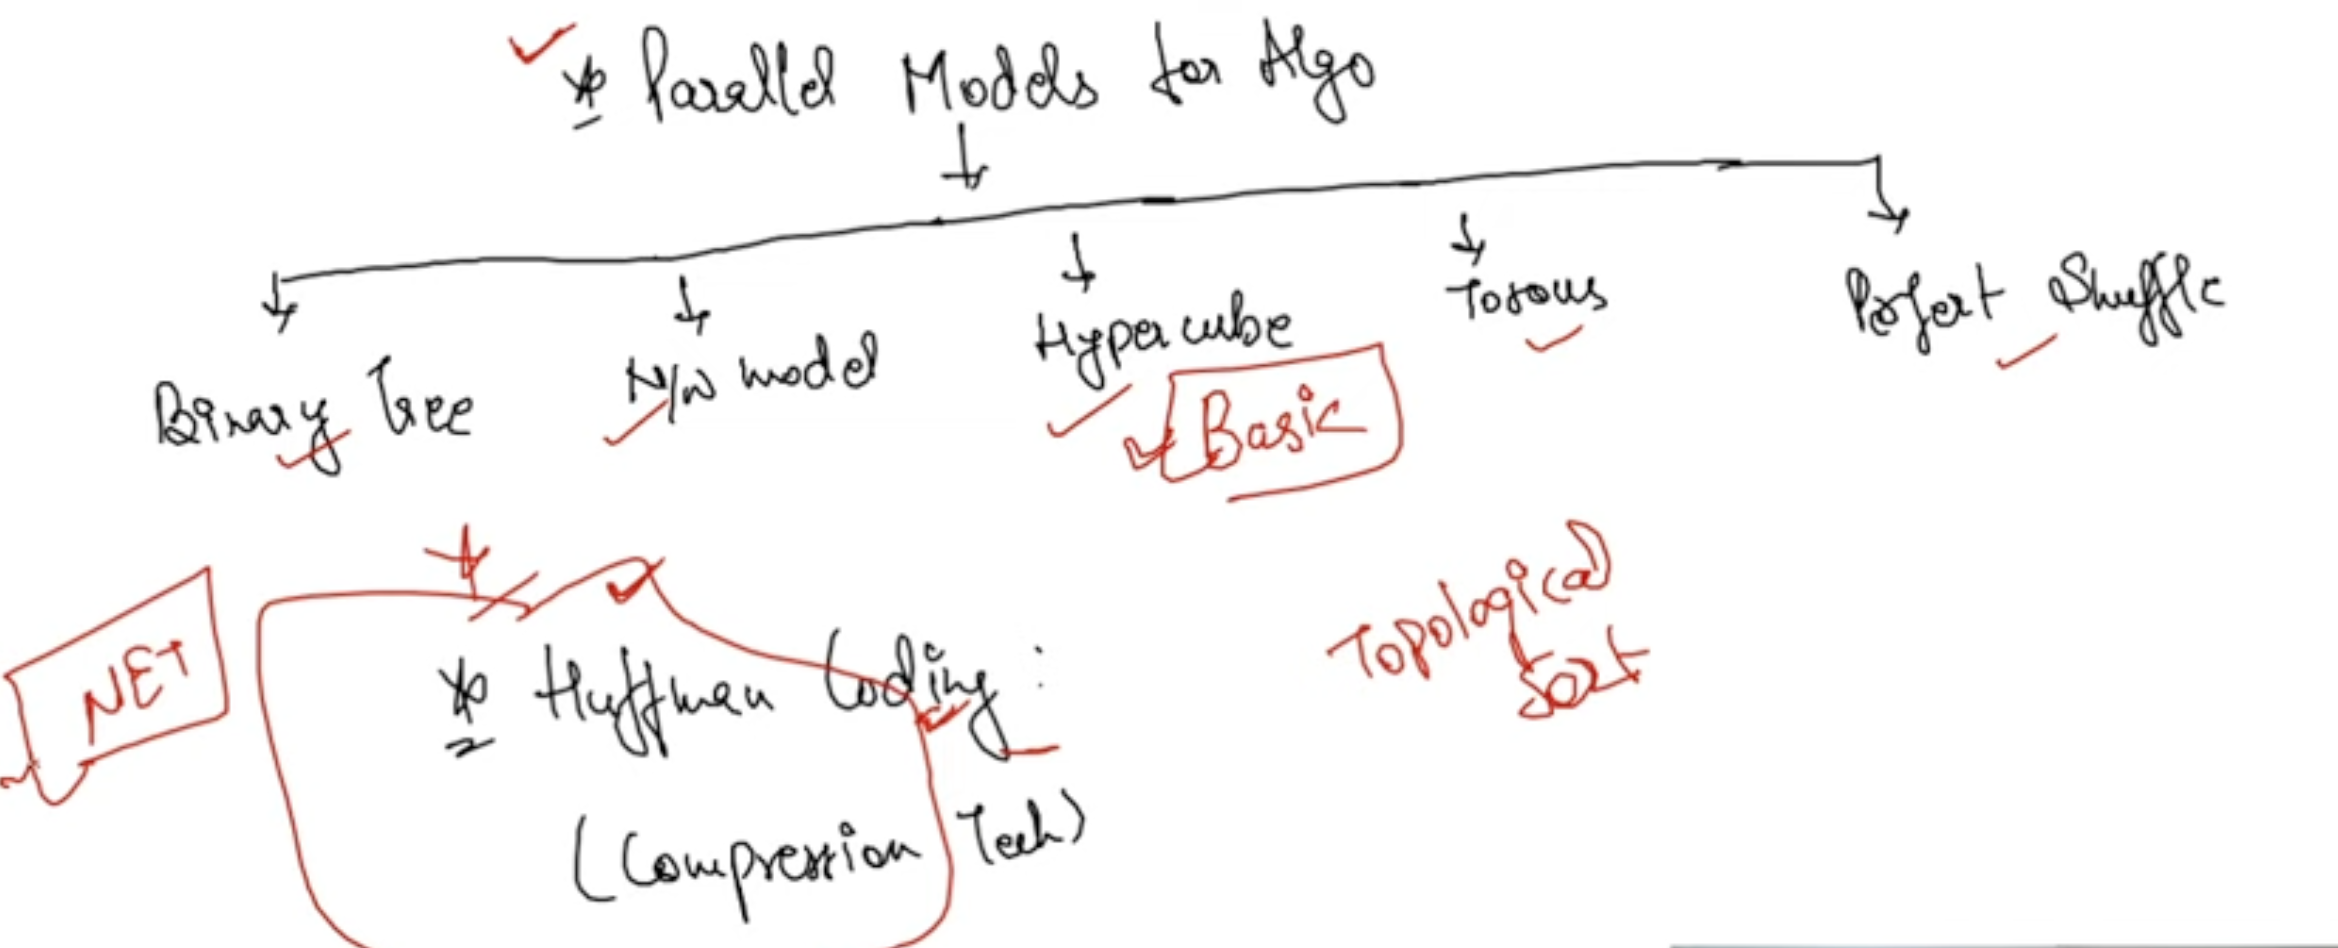 * Parallel Models for Algo
Binary Tree
N/W model
Hypercube
Torous
Perfect Shuffle
Basic
NET
* Huffman Coding :
(Compression Tech)
Topological
Sort